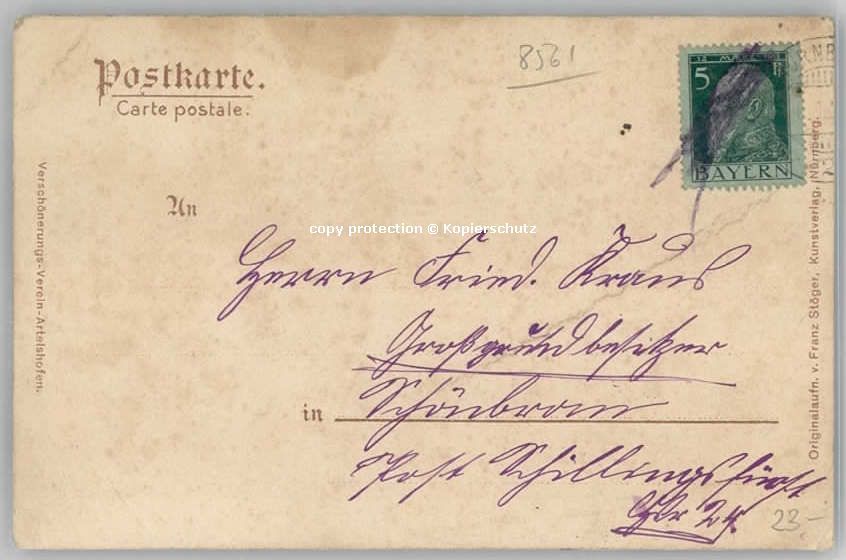 8561
Postkarte.
Carte postale.
12 MÄRZ 1911
5
BAYERN
Verschönerungs-Verein-Artelshofen.
Originalaufn. v. Franz Stöger, Kunstverlag, Nürnberg.
An
copy protection © Kopierschutz
Herrn Fried. Kraus
Großgrundbesitzer
in Schönbronn
Post Schillingsfürst
23-